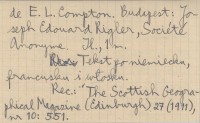 de E. L. Compton. Budapest: Jo-
seph Edouard Rigler, Société
Anonyme. Il., 1 m.
Tekst po niemiecku,
francusku i włosku.
Rec.: "The Scottish Geogra-
phical Magazine (Edinburgh) 27 (1911),
nr 10: 551.